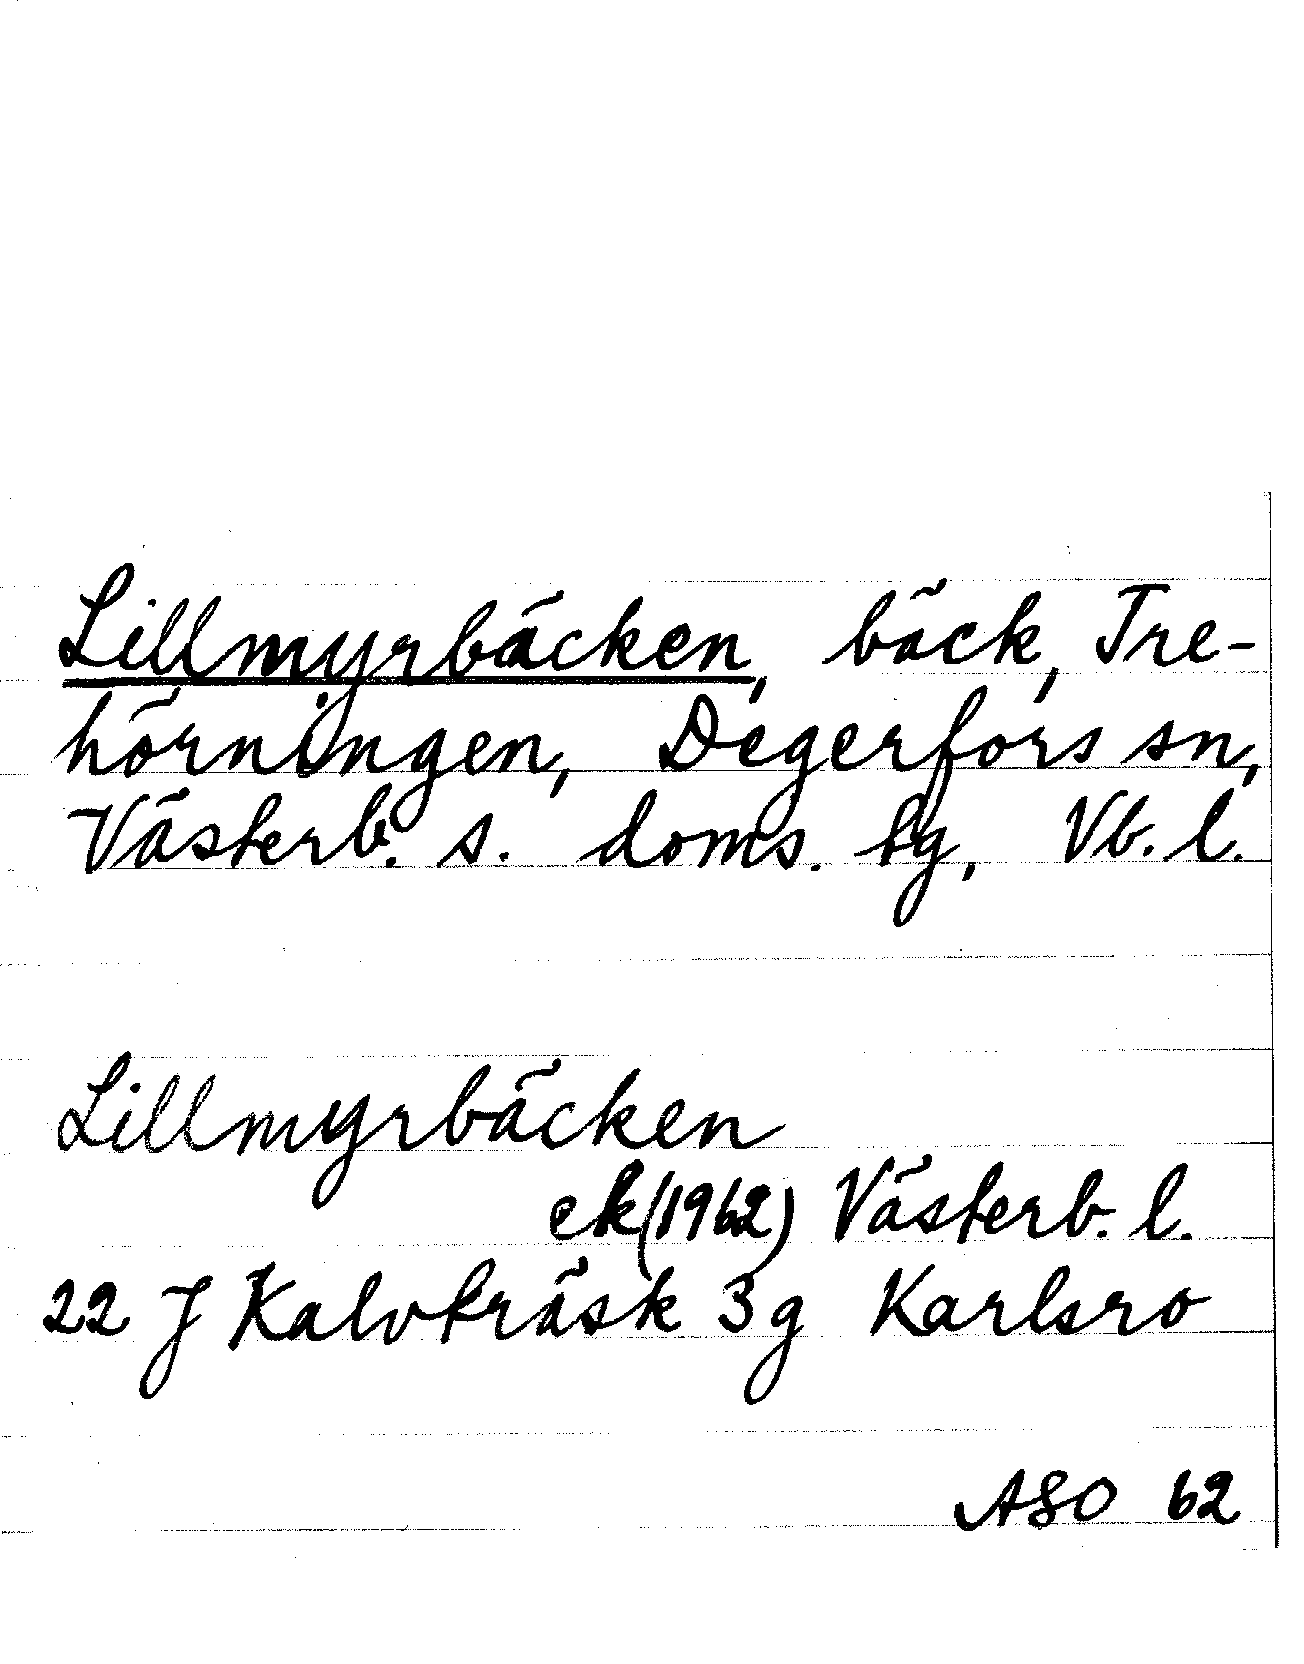 Lillmyrbäcken, bäck, Tre-
hörningen, Degerfors sn,
Västerb. s. doms. tg, Vb. l.
Lillmyrbäcken
ek (1962) Västerb. l.
22 J Kalvträsk 3g Karlsro
ASO 62